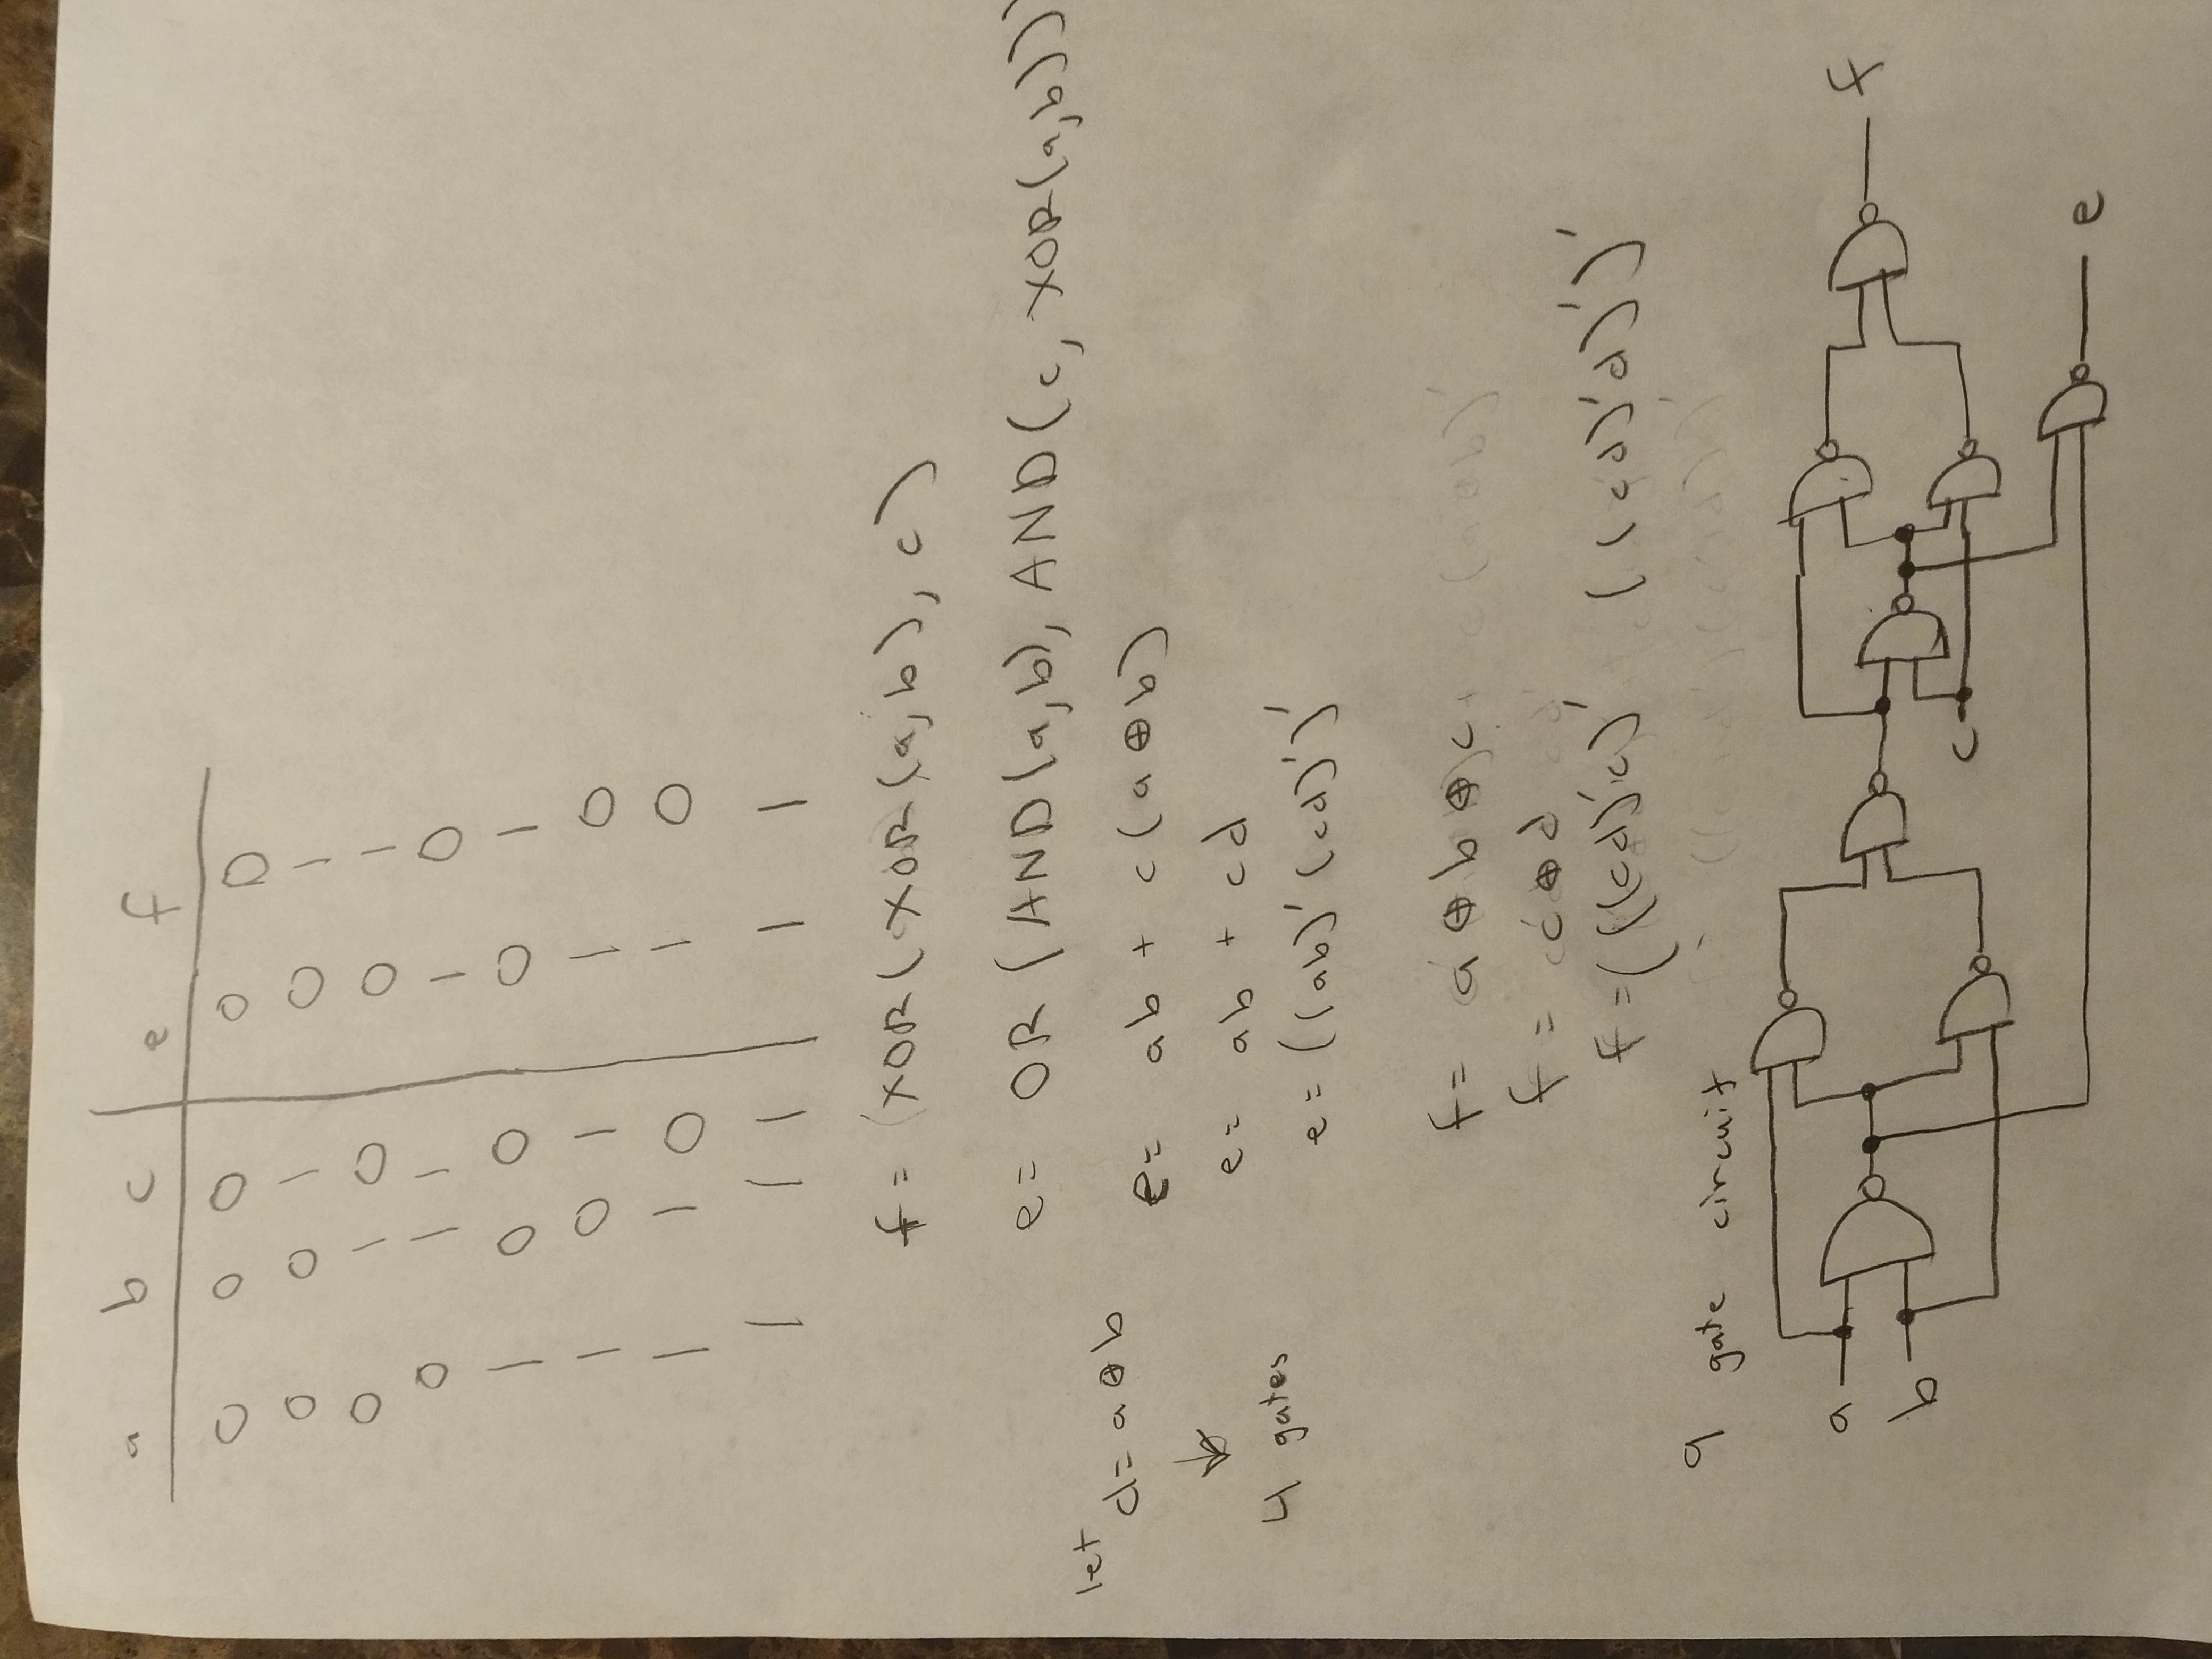 a b c e f
0 0 0 0 0
0 0 1 0 1
0 1 0 0 1
0 1 1 1 0
1 0 0 0 1
1 0 1 1 0
1 1 0 1 0
1 1 1 1 1
f = XOR(XOR(a,b), c)
e = OR(AND(a,b), AND(c, XOR(a,b)))
let
d = a ⊕ b
e = ab + c(a⊕b)
e = ab + cd
4 gates
e = ((ab)'(cd)')'
f = a ⊕ b ⊕ c
f = c ⊕ d
f = (((cd)'c)' ((cd)'d)')'
9 gate circuit
a
b
c
f
e